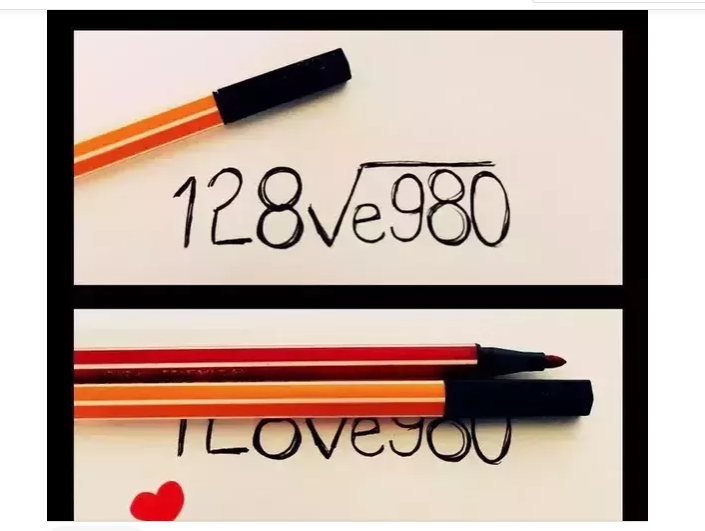 128√e980
ILove you